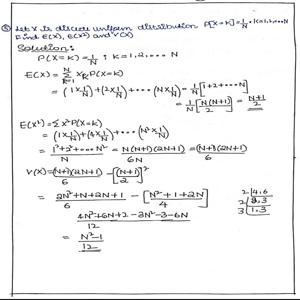 ⑤ Let X is discrete uniform distribution P[X=k]=1/N, k=1,2,...N
Find E(X), E(X²) and V(X)
Solution:
P(X=k)=1/N ; k=1,2,....N
E(X)= N Σ k=1 x_k P(X=k)
= (1x1/N)+(2x1/N)+....(Nx1/N)=1/N[1+2+....N]
=1/N[N(N+1)/2]=N+1/2
E(X²)=Σx²P(X=k)
=(1x1/N)+(4x1/N)+....(N²x1/N)
=1²+2²+....N²/N = N(N+1)(2N+1)/6N =(N+1)(2N+1)/6
V(X)=(N+1)(2N+1)/6 -[(N+1)/2]²
= 2N²+N+2N+1/6 - [N²+1+2N/4]
4N²+6N+2-3N²-3-6N/12
= N²-1/12
2 4,6
2 2,3
3 1,3